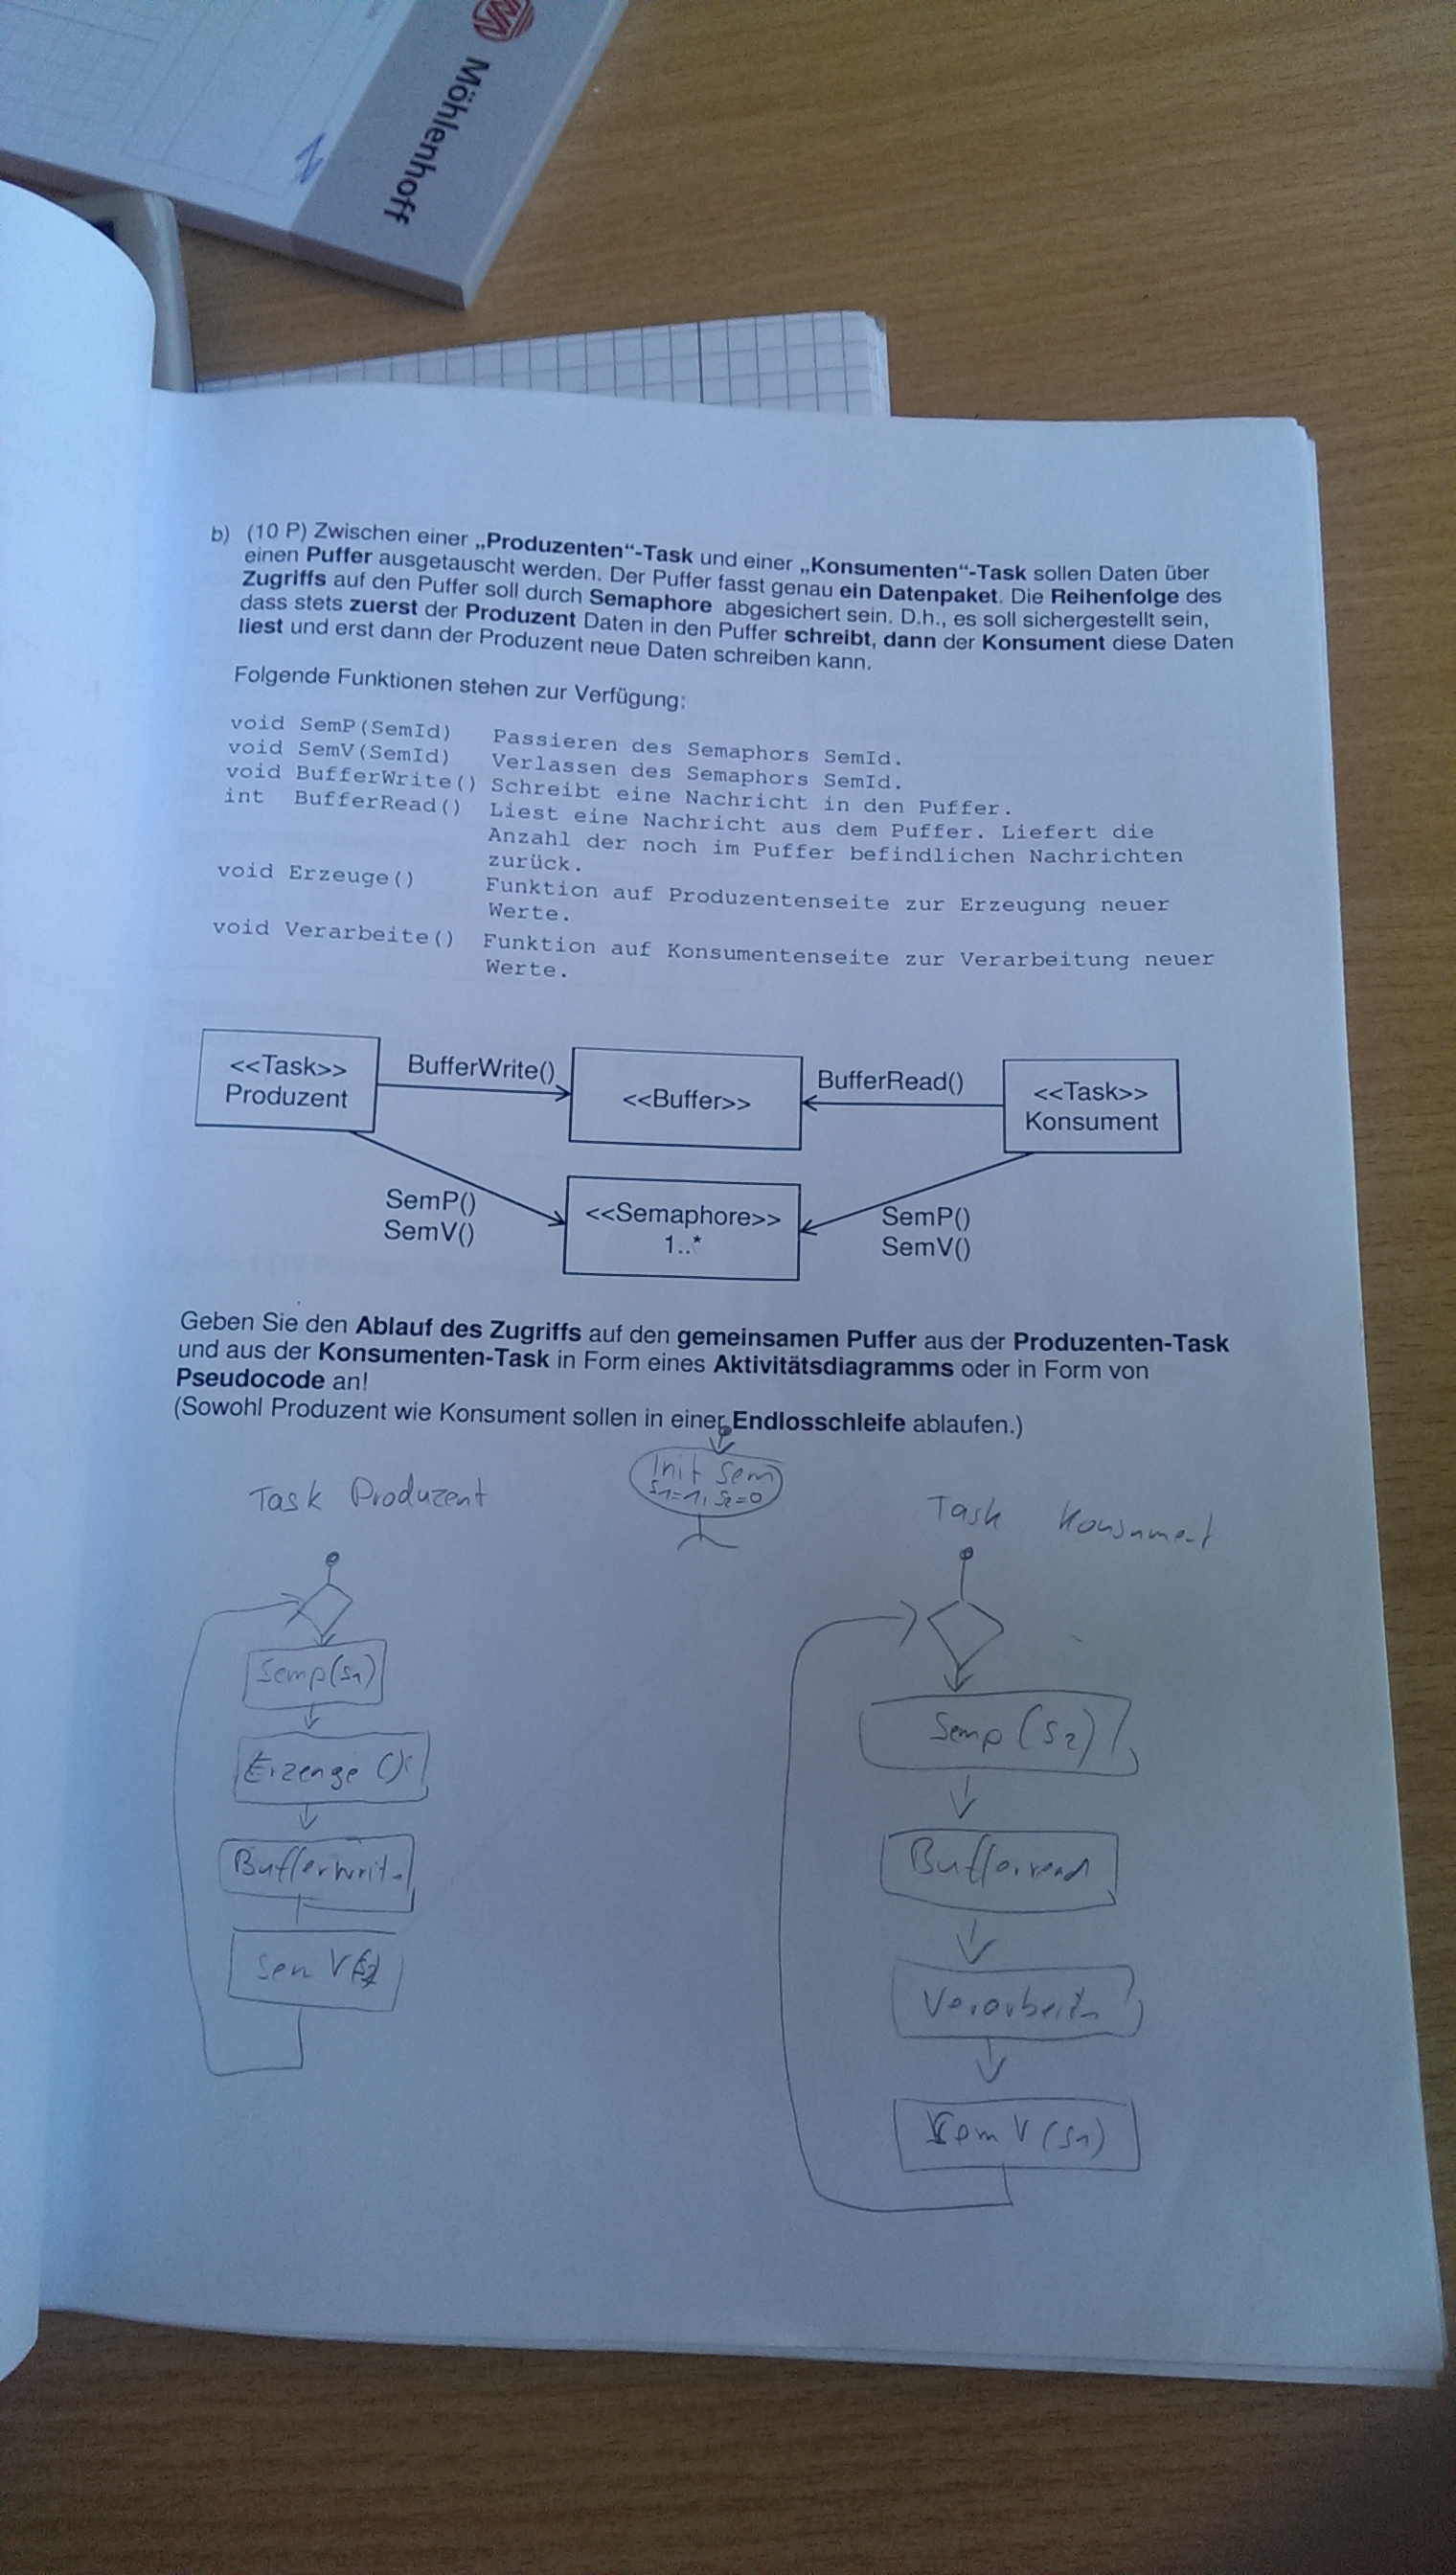 Möhlenhoff
b) (10 P) Zwischen einer „Produzenten“-Task und einer „Konsumenten“-Task sollen Daten über
einen Puffer ausgetauscht werden. Der Puffer fasst genau ein Datenpaket. Die Reihenfolge des
Zugriffs auf den Puffer soll durch Semaphore abgesichert sein. D.h., es soll sichergestellt sein,
dass stets zuerst der Produzent Daten in den Puffer schreibt, dann der Konsument diese Daten
liest und erst dann der Produzent neue Daten schreiben kann.
Folgende Funktionen stehen zur Verfügung:
void SemP(SemId) Passieren des Semaphors SemId.
void SemV(SemId) Verlassen des Semaphors SemId.
void BufferWrite() Schreibt eine Nachricht in den Puffer.
int BufferRead() Liest eine Nachricht aus dem Puffer. Liefert die
Anzahl der noch im Puffer befindlichen Nachrichten
zurück.
void Erzeuge() Funktion auf Produzentenseite zur Erzeugung neuer
Werte.
void Verarbeite() Funktion auf Konsumentenseite zur Verarbeitung neuer
Werte.
<<Task>>
Produzent
BufferWrite()
<<Buffer>>
BufferRead()
<<Task>>
Konsument
SemP()
SemV()
<<Semaphore>>
1..*
SemP()
SemV()
Geben Sie den Ablauf des Zugriffs auf den gemeinsamen Puffer aus der Produzenten-Task
und aus der Konsumenten-Task in Form eines Aktivitätsdiagramms oder in Form von
Pseudocode an!
(Sowohl Produzent wie Konsument sollen in einer Endlosschleife ablaufen.)
Init Sem
S1=1, S2=0
Task Produzent
Task Konsument
Semp(S1)
Erzeuge()
Bufferwrite
Sem V(S2)
Semp(S2)
Bufferread
Verarbeite
Sem V(S1)